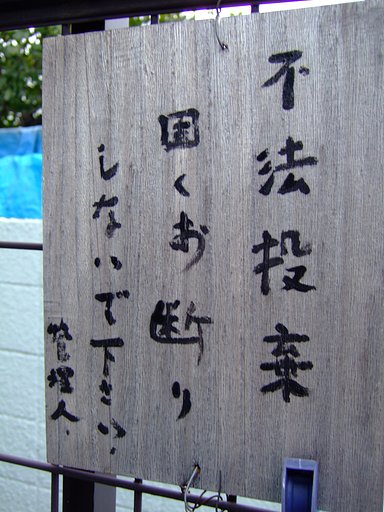 不法投棄
固くお断り
しないで下さい.
管理人.